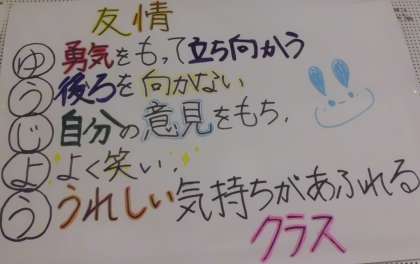 友情
ゆ 勇気をもって立ち向かう
う 後ろを向かない
じ 自分の意見をもち、
よ よく笑い、
う うれしい気持ちがあふれる
クラス